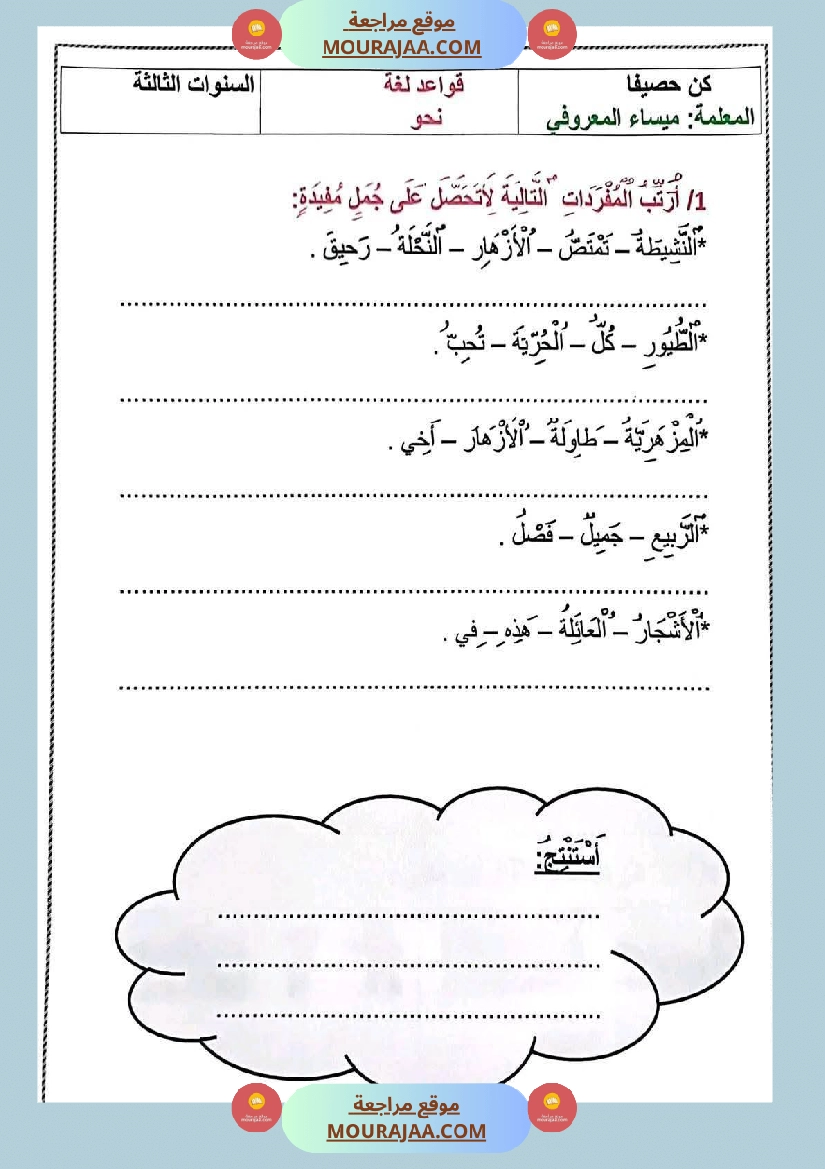 موقع مراجعة
MOURAJAA.COM
كن حصيفا
المعلمة: ميساء المعروفي
قواعد لغة
نحو
السنوات الثالثة
1/ أُرَتِّبُ الْمُفْرَدَاتِ التَّالِيَةَ لِأَتَحَصَّلَ عَلَى جُمَلٍ مُفِيَدَةٍ:
*اَلنَّشِيطَةُ – تَمْتَصُّ – اُلْأَزْهَارِ – اَلنَّحْلَةُ – رَحيِقَ .
*اَلْطُّيُورِ – كُلُّ – اُلْحُرِّيَةَ – تُحِبُّ .
*اُلْمِزْهَرِيَّةُ – طَاوِلَةٌ – اُلْأَزْهَارَ – أَخِي .
*اَلْرَّبِيعِ – جَمِيلٌ – فَصْلُ .
*اَلْأَشْجَارُ – اُلْعَائِلَةُ – هَذِهِ – فِي .
أَسْتَنْتِجُ:
موقع مراجعة
MOURAJAA.COM